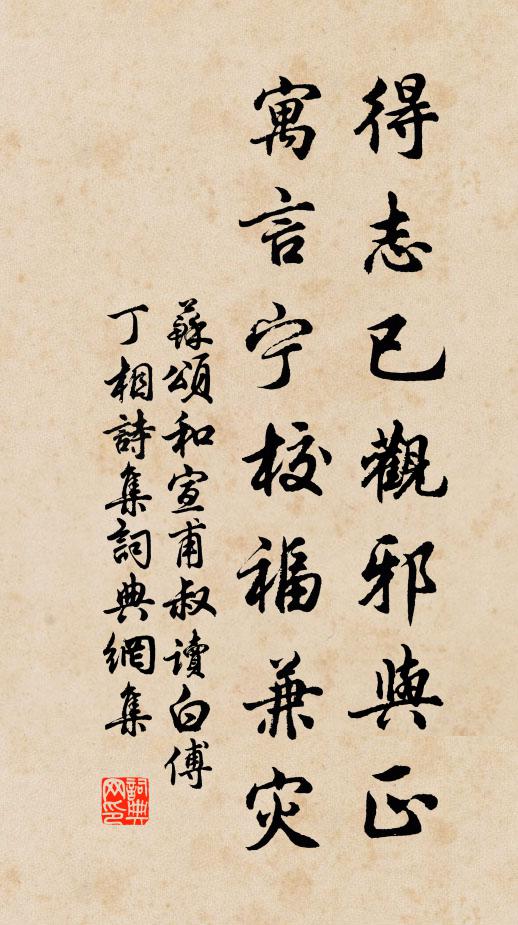 得志已觀邪與正
寓言宁校福兼灾
蘇頌和宣甫叔讀白傅
丁相詩集詞典網集
詞典网印